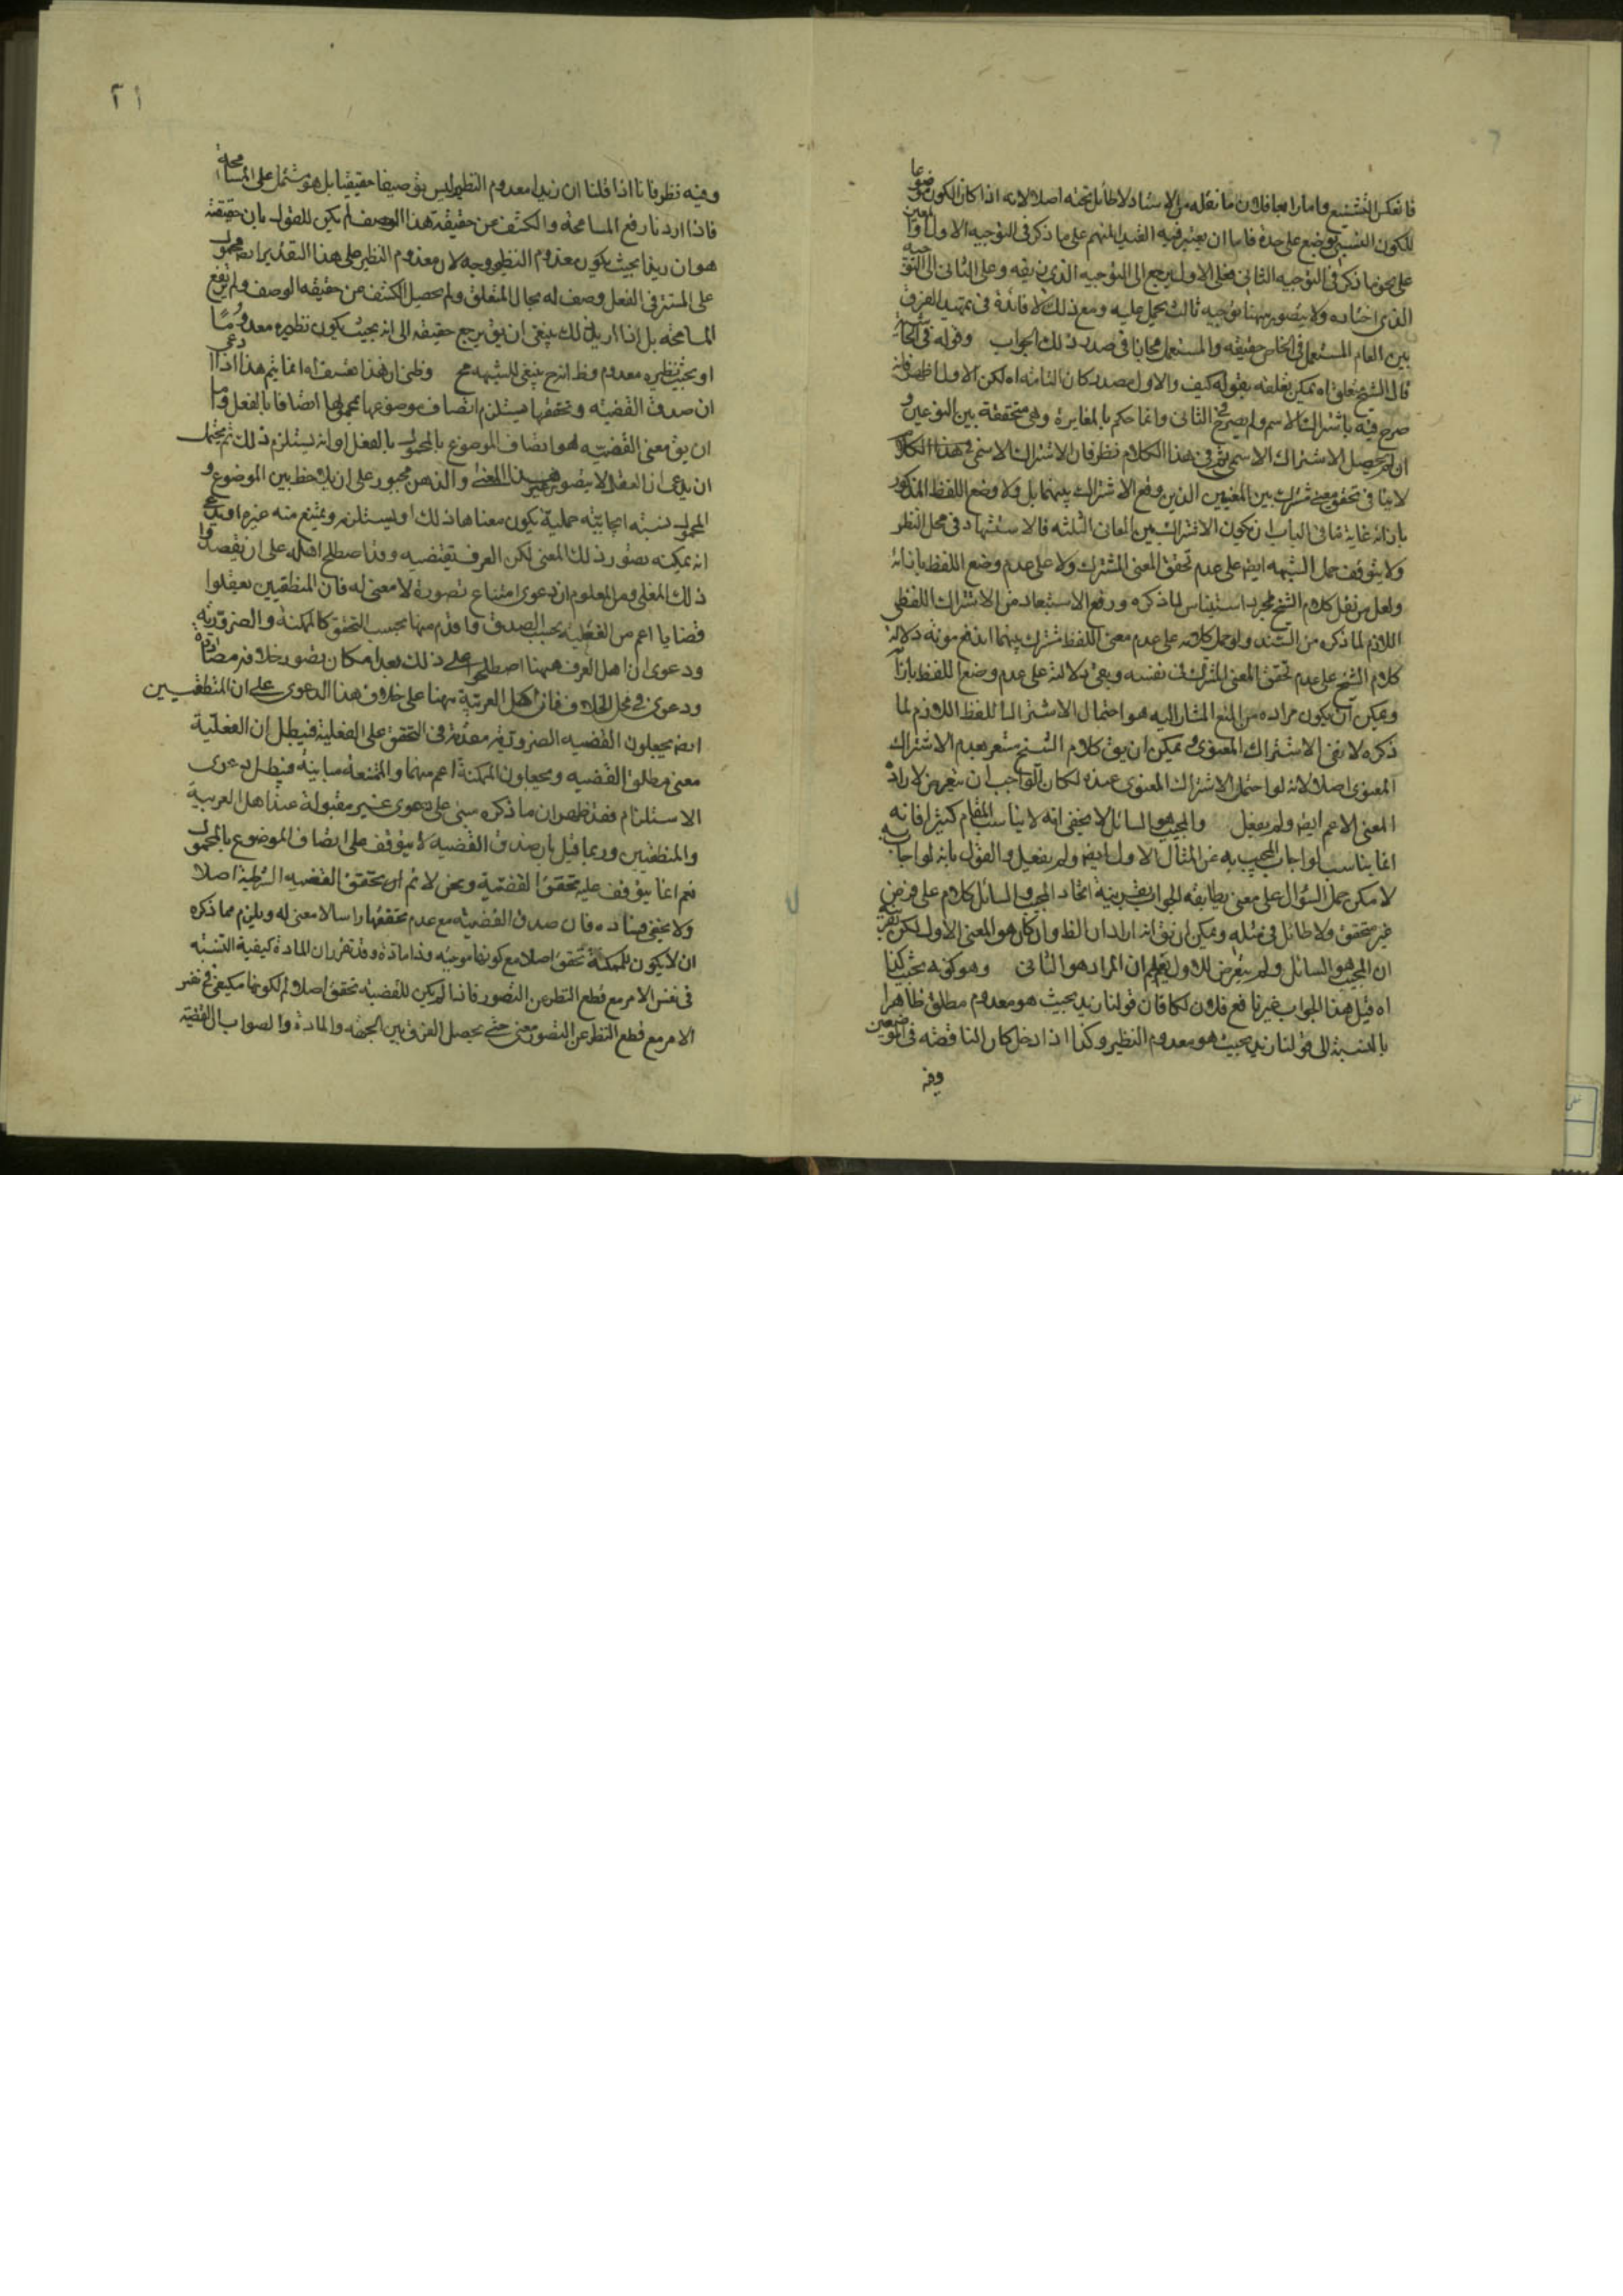 فانعكس التشنيع واما رابعا فلان ما نقله من الاسناد لا طائل تحته اصلا لانه اذا كان الكون موضوعا
للكون النسبى بوضع على حدة فاما ان يعتبر فيه القيد المبهم على ما ذكر فى التوجيه الاول او المعين
على نحو ما ذكر فى التوجيه الثانى فعلى الاول يرجع الى التوجيه الذى زيفه وعلى الثانى الى التوجيه
الذى اختاره ولا يتصور ههنا توجيه ثالث يحمل عليه ومع ذلك لا فائدة فى تمهيد الفرق
بين العام المستعمل فى الخاص حقيقه والمستعمل مجازا فى صدر ذلك الجواب وقوله فى الحاشية
قال الشيخ يمكن تعلقه بقوله كيف والاول مصدر كان التامه اه لكن الاول اظهر فانه
صرح فيه باشتراك الاسم ولم يصرح فى الثانى وانما حكم بالمغايرة وهى متحققة بين النوعين و
ان لم يحصل الاشتراك الاسمى ثم فى هذا الكلام نظر فان الاشتراك الاسمى فى هذا الكلام
لا ينافى تحقق معنى مشترك بين المعنيين الذين وقع الاشتراك بينهما بل ولا وضع اللفظ المذكور
بازائه غاية ما فى الباب ان يكون الاشتراك بين المعانى الثلثه فالاستشهاد فى محل النظر
ولا يتوقف حمل الشبهه ايضا على عدم تحقق المعنى المشترك ولا على عدم وضع اللفظ بازائه
ولعل من نقل كلام الشيخ مجرد استيناس لما ذكره ورفع الاستبعاد من الاشتراك اللفظى
اللازم لما ذكره من السند ولو حمل كلامه على عدم معنى اللفظ مشترك بينهما اندفع مونه دلالة
كلام الشيخ على عدم تحقق المعنى المشترك فى نفسه وبقى دلالته على عدم وضع اللفظ بازائه
ويمكن ان يكون مراده من المنع المشار اليه هو احتمال الاشتراك اللفظ اللازم لما
ذكره لا نفى الاشتراك المعنوى ويمكن ان يق كلام الشيخ مشعر بعدم الاشتراك
المعنوى اصلا لانه لو احتمل الاشتراك المعنوى عنده لكان الواجب ان يتعرض لارادة
المعنى الاعم ايضا ولم يفعل والمجيب هو السائل لا يخفى انه لا يناسب المقام كثيرا فانه
انما يناسب لو اجاب المجيب به عن المثال الاول ايضا ولم يفعل والقول بانه لو اجاب به
لا مكن حمل السؤال على معنى يطابقه الجواب بقرينة اتحاد المجيب والسائل كلام على فرض
غير متحقق ولا طائل فى مثله ويمكن ان يق انه اراد ان الظ وان كان هو المعنى الاول لكن بقرينة
ان المجيب هو السائل ولم يتعرض للاول يعلم ان المراد هو الثانى وهو كونه بحيث كذا
اه قيل هذا الجواب غير نافع فلان لكا فان قولنا زيد بحيث هو معدوم مطلق ظاهرا
بالنسبة الى قولنا زيد بحيث هو معدوم النظير وكذا اذا ادخل كان الناقصه فى الموضعين
وفيه
٢١
وفيه نظر فانا اذا قلنا ان زيدا معدوم النظير ليس توصيفا حقيقيا بل هو مشتمل على المسامحة
فاذا اردنا رفع المسامحة والكشف عن حقيقة هذا الوصف لم يكن للقول بان حقيقته
هو ان زيدا بحيث يكون معدوم النظير وجه لان معدوم النظير على هذا التقدير ايضا محمول
على المستتر فى الفعل وصف له بحال المتعلق ولم يحصل الكشف عن حقيقه الوصف ولم يرفع
المسامحة بل اذا اريد ذلك ينبغى ان يق يرجع حقيقته الى انه بحيث يكون نظيره معدوما
او بحيث نظيره معدوم وظ انه ح ينبغى للشبهه مح وظنى ان هذا تعسف اه انما يتم هذا اذا ادعى
ان صدق القضيه وتحققها يستلزم اتصاف موضوعها بمحمولها اتصافا بالفعل واما
ان يق معنى القضيه هو اتصاف الموضوع بالمحمول بالفعل او انه يستلزم ذلك ثم يحتمل
ان يدعى ان العقل لا يتصور غير هذا المعنى والذهن مجبور على ان يلاحظ بين الموضوع و
المحمول نسبة ايجابيته حملية يكون معناها ذلك او يستلزمه ويمتنع منه غيره او يدعى
انه يمكنه تصور ذلك المعنى لكن العرف يقتضيه وقد اصطلح اهله على ان يقصدوا
ذلك المعنى ومن المعلوم ان دعوى امتناع تصوره لا معنى له فان المنطقيين يعقلوا
قضايا اعم من الفعليه بحسب الصدق واقدم منها بحسب التحقق كالممكنة والضروريه
ودعوى ان اهل العرف ههنا اصطلحوا على ذلك بعد امكان تصور خلافه مصادرة
ودعوى فى محل الخلاف فان اهل العربية ههنا على خلاف هذا الدعوى على ان المنطقيين
ايضا يجعلون القضيه الضرورية مقدمة فى التحقق على الفعلية فيبطل ان الفعلية
معنى مطلق القضيه ويجعلون الممكنة اعم منهما والممتنعة مباينة فيبطل دعوى
الاستلزام فقد ظهر ان ما ذكره مبنى على دعوى غير مقبولة عند اهل العربية
والمنطقيين وربما قيل بان صدق القضيه لا يتوقف على اتصاف الموضوع بالمحمول
نعم انما يتوقف عليه تحقق القضية ونحن لا نم ان تحقق القضيه الشرطية اصلا
ولا يخفى فساده فان صدق القضيه مع عدم تحققها راسا لا معنى له ويلزم مما ذكره
ان لا يكون للممكنة تحقق اصلا مع كونها موجبه وذا مادة وقد تقرر ان المادة كيفية النسبه
فى نفس الامر مع قطع النظر عن التصور فاذا لم يكن للقضيه تحقق اصلا لم لكونها مكيفى فى نفس
الامر مع قطع النظر عن التصور معنى حتى يحصل الفرق بين الجهه والمادة والصواب ان القضيه